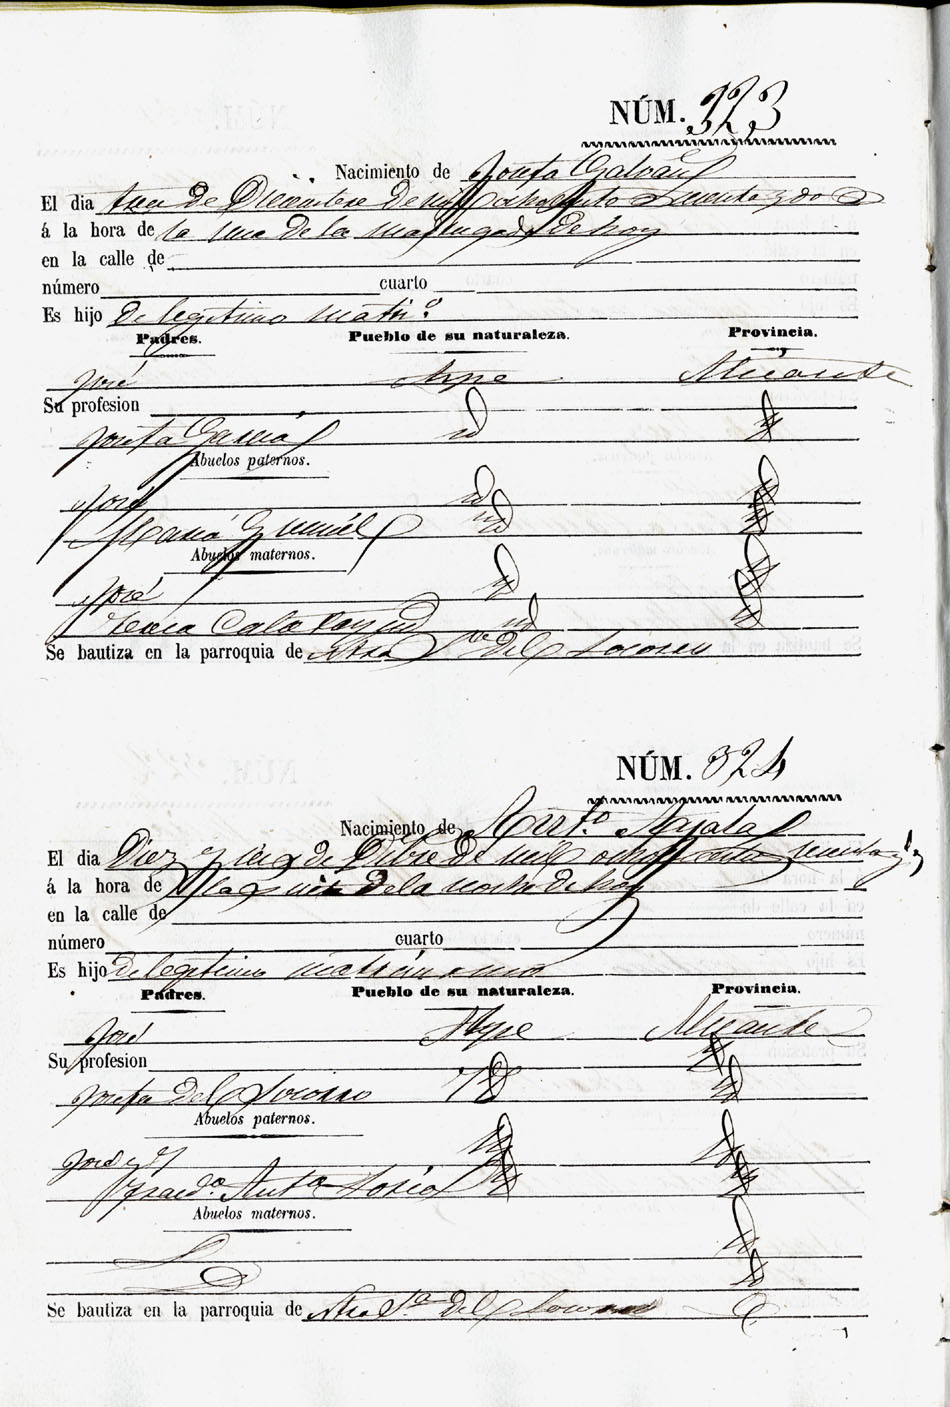 NÚM. 323
Nacimiento de Josefa Galvañ
El dia trece de Diciembre de mil ochocientos sesenta y dos
á la hora de la una de la madrugada de hoy
en la calle de
número cuarto
Es hijo de legitimo matri.º
Padres. Pueblo de su naturaleza. Provincia.
José Aspe Alicante
Su profesion
Josefa Garcia id id
Abuelos paternos.
José id id
Maria id id
Abuelos maternos.
José id id
Calatayud id id
Se bautiza en la parroquia de Ntra Sra del Socorro
NÚM. 324
Nacimiento de Ayala
El dia Diez y seis de Dibre de mil ochocientos sesenta y
á la hora de las de la noche de hoy
en la calle de
número cuarto
Es hijo de legitimo matrimonio
Padres. Pueblo de su naturaleza. Provincia.
José Aspe Alicante
Su profesion id
Josefa del Socorro id id
Abuelos paternos.
José id id
Anta id id
Abuelos maternos.
id
id
Se bautiza en la parroquia de Ntra Sra del Socorro